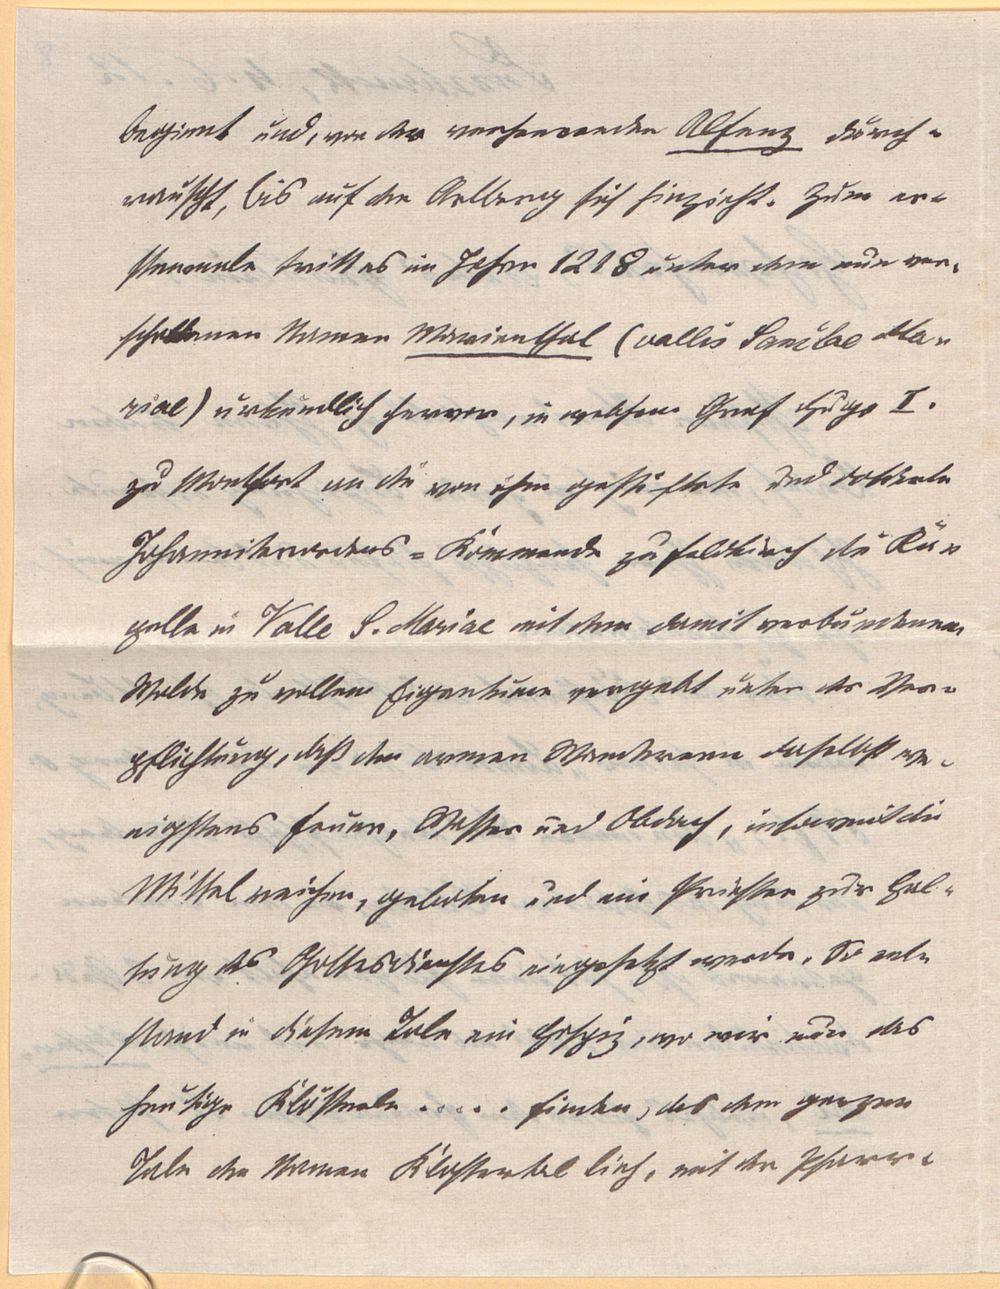 beginnt und, von der verheerenden Alfenz durch-
rauscht, bis auf den Arlberg sich hinzieht. Zum er-
stenmale tritt es im Jahre 1218 unter dem nun ver-
schollenen Namen Marienthal (vallis Sanctae Ma-
riae) urkundlich hervor, in welchem Graf Hugo I.
zu Montfort an die von ihm gestiftete und dotierte
Johanniterordens-Kommende zu Feldkirch die Ka-
pelle in Valle S. Mariae mit dem damit verbundenen
Walde zu vollem Eigentume vergabt unter der Ver-
pflichtung, daß den armen Wanderern daselbst we-
nigstens Feuer, Wasser und Obdach, insoweit die
Mittel reichen, geboten und ein Priester zur Hal-
tung des Gottesdienstes eingesetzt werde. So ent-
stand in diesem Tale ein Hospiz, wo wir nun das
heutige Klösterle ..... finden, das dem ganzen
Tale den Namen Klostertal lieh, mit der Pfarr-